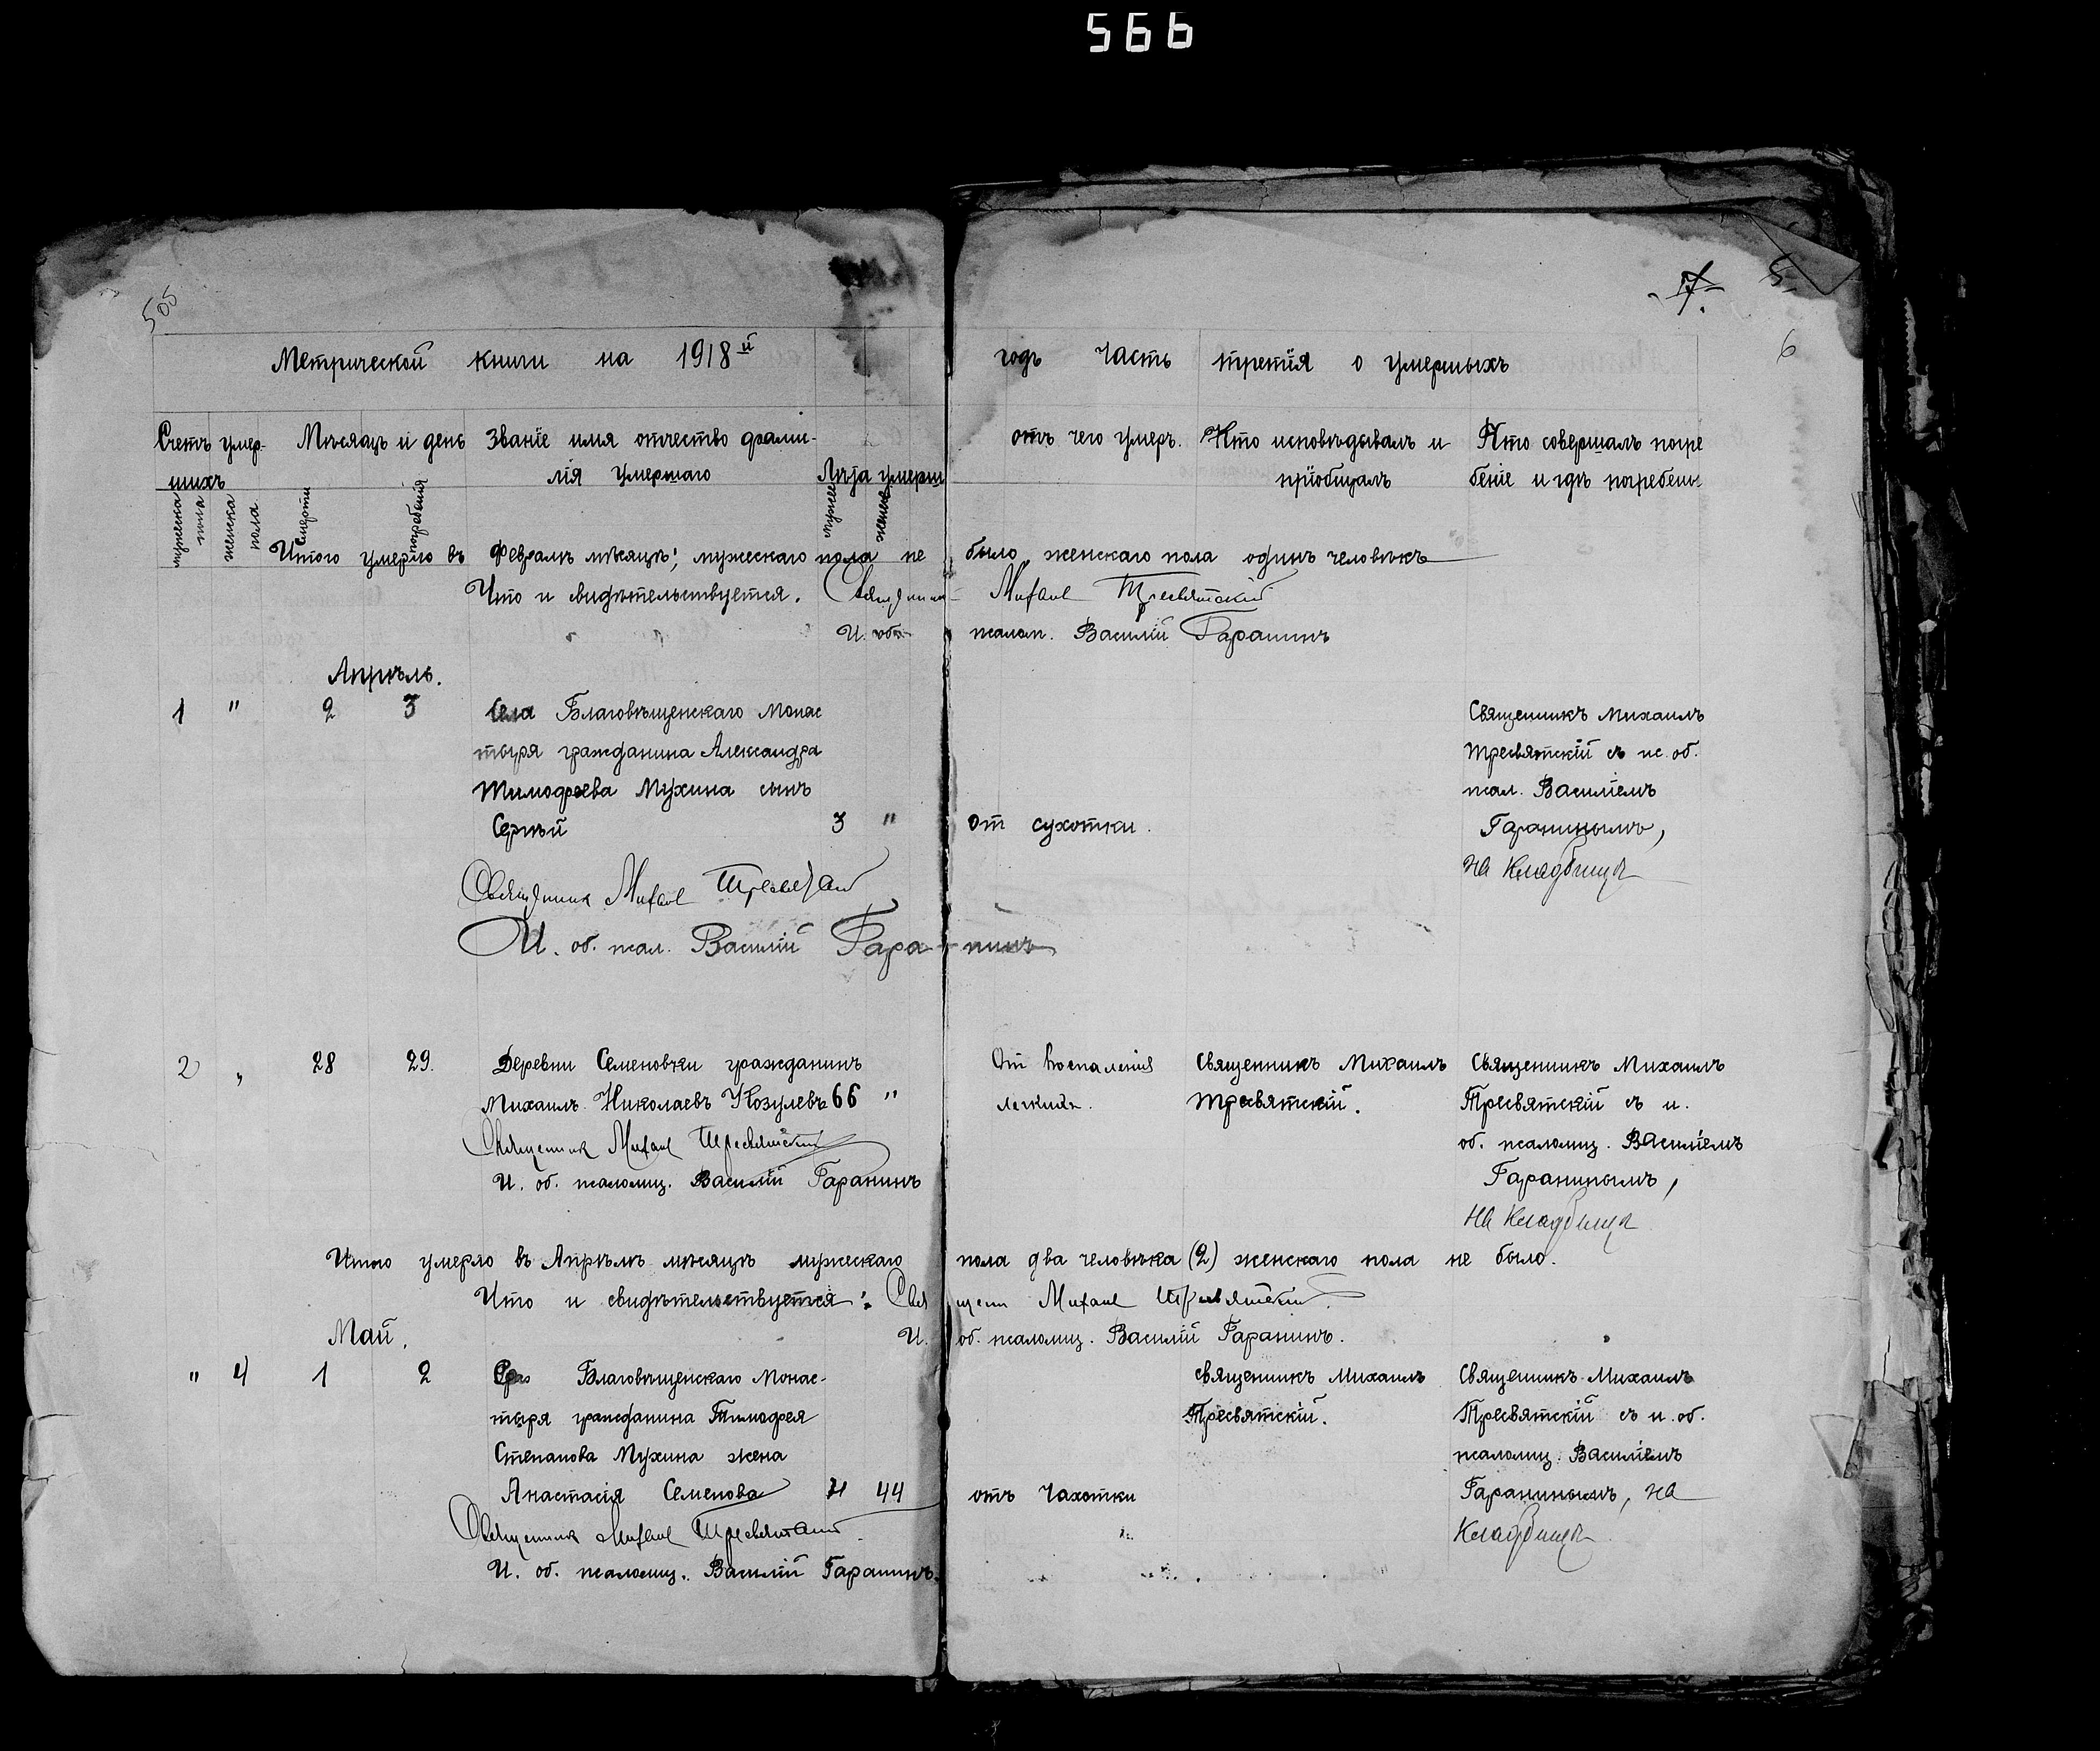 566
505
7.
5.
6
Метрической книги на 1918й годъ часть третія о умершыхъ
Счетъ умер-
шихъ
Мѣсяцъ и день
Званіе имя отчество фами-
лія умершаго
Лѣта умерш
отъ чего умеръ.
Кто исповѣдывалъ и
пріобщалъ
Кто совершалъ погре
беніе и гдѣ погребены
мужеска
пола
женска
пола
Смерти
погребенія
мужес
женск
Итого умерло въ Февралѣ мѣсяцѣ; мужескаго пола не было, женскаго пола одинъ человѣкъ
Что и свидѣтельствуется. Священник Михаил Тресвятский
И. об. псалом. Василій Гаранинъ
Апрѣль.
1 " 2 3
Села Благовѣщенскаго Монас
тыря гражданина Александра
Тимофеева Мухина сынъ
Сергѣй 3 " от сухотки.
Священникъ Михаилъ
Тресвятскій съ ис. об.
псал. Василіемъ
Гаранинымъ,
на кладбище
Священник Михаил Тресвятский
И. об. псал. Василій Гаранинъ
2 " 28 29.
Деревни Семеновки гражданинъ
Михаилъ Николаевъ Козулевъ 66 "
От воспаленія
легкихъ.
Священникъ Михаилъ
Тресвятскій.
Священникъ Михаилъ
Тресвятскій съ и.
об. псаломщ. Василіемъ
Гаранинымъ,
на кладбище
Священник Михаил Тресвятский
И. об. псаломщ. Василій Гаранинъ
Итого умерло въ Апрѣлѣ мѣсяцѣ мужескаго пола два человѣка (2) женскаго пола не было.
Что и свидѣтельствуется: Священ Михаил Тресвятский
И. об. псаломщ. Василій Гаранинъ.
Май.
" 4 1 2
Благовѣщенскаго Монас-
тыря гражданина Тимофея
Степанова Мухина жена
Анастасія Семенова 44 отъ Чахотки
Священникъ Михаилъ
Тресвятскій.
Священникъ Михаилъ
Тресвятскій съ и. об.
псаломщ. Василіемъ
Гаранинымъ, на
кладбище
Священник Михаил Тресвятский
И. об. псаломщ. Василій Гаранинъ.